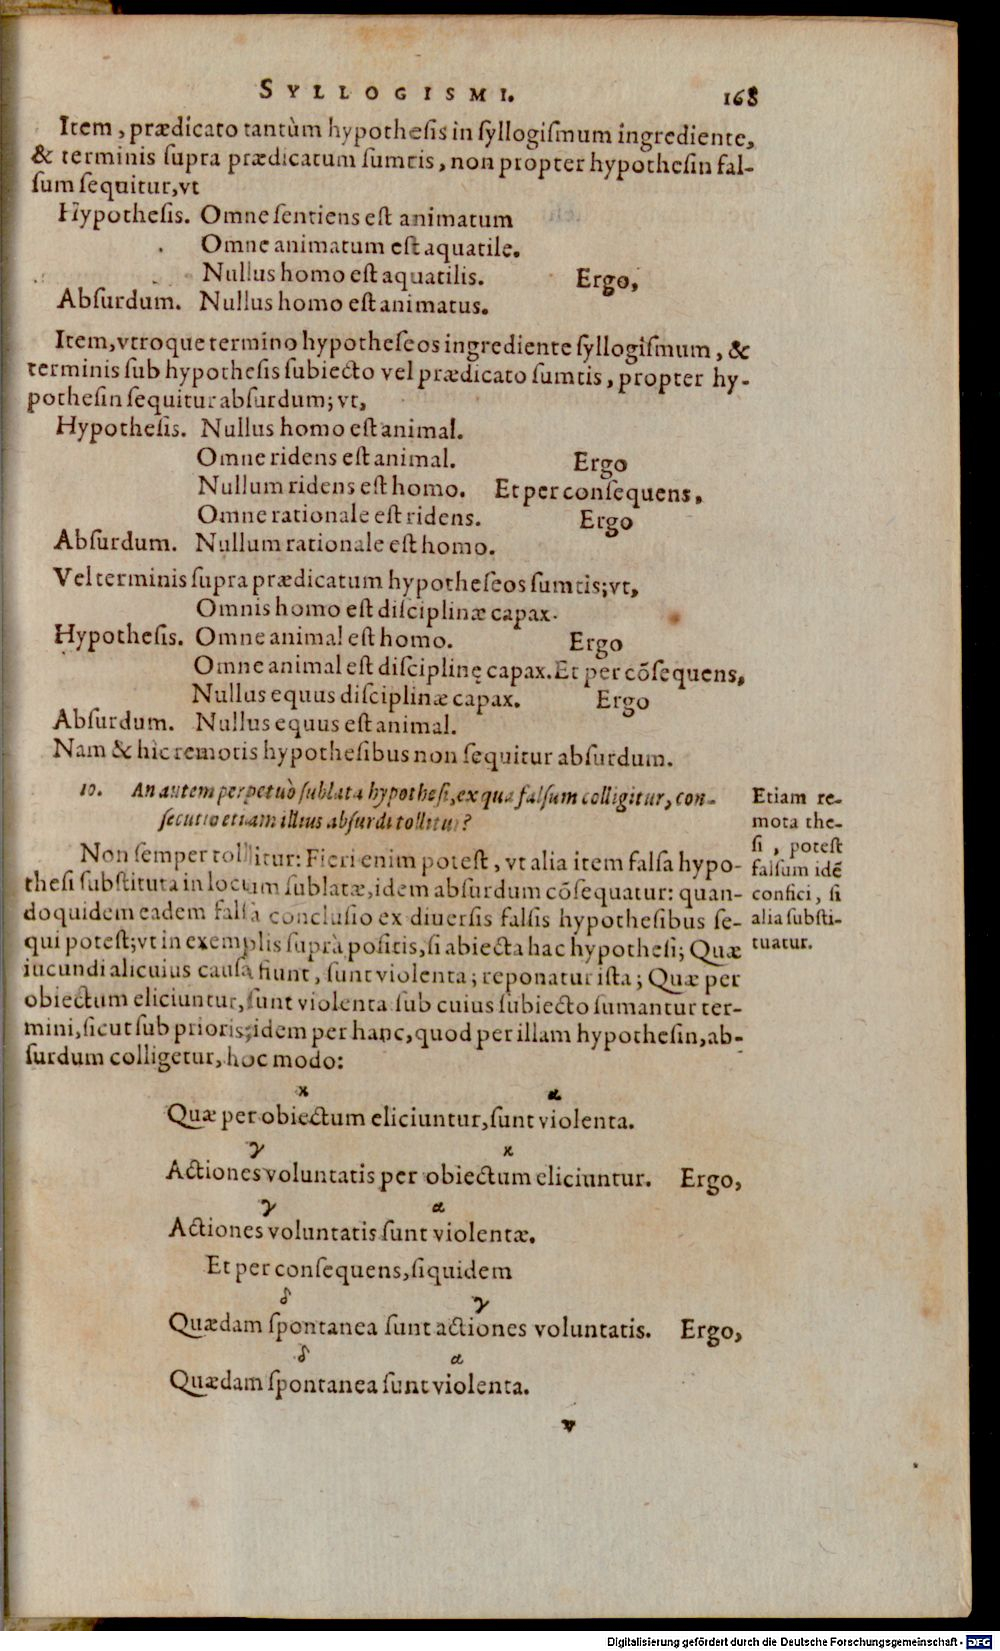 SYLLOGISMI. 168
Item, prædicato tantùm hypothesis in syllogismum ingrediente,
& terminis supra prædicatum sumtis, non propter hypothesin fal-
sum sequitur, vt
Hypothesis. Omne sentiens est animatum
Omne animatum est aquatile.
Nullus homo est aquatilis. Ergo,
Absurdum. Nullus homo est animatus.
Item, vtroque termino hypotheseos ingrediente syllogismum, &
terminis sub hypothesis subiecto vel prædicato sumtis, propter hy-
pothesin sequitur absurdum; vt,
Hypothesis. Nullus homo est animal.
Omne ridens est animal. Ergo
Nullum ridens est homo. Et per consequens,
Omne rationale est ridens. Ergo
Absurdum. Nullum rationale est homo.
Vel terminis supra prædicatum hypotheseos sumtis; vt,
Omnis homo est disciplinæ capax.
Hypothesis. Omne animal est homo. Ergo
Omne animal est disciplinę capax. Et per cõsequens,
Nullus equus disciplinæ capax. Ergo
Absurdum. Nullus equus est animal.
Nam & hic remotis hypothesibus non sequitur absurdum.
10. An autem perpetuò sublata hypothesi, ex qua falsum colligitur, con-
secutio etiam illius absurdi tollitur?
Non semper tollitur: Fieri enim potest, vt alia item falsa hypo-
thesi substituta in locum sublatæ, idem absurdum cõsequatur: quan-
doquidem eadem falsa conclusio ex diuersis falsis hypothesibus se-
qui potest; vt in exemplis suprà positis, si abiecta hac hypothesi; Quæ
iucundi alicuius causa fiunt, sunt violenta; reponatur ista; Quæ per
obiectum eliciuntur, sunt violenta sub cuius subiecto sumantur ter-
mini, sicut sub prioris; idem per hanc, quod per illam hypothesin, ab-
surdum colligetur, hoc modo:
Etiam re-
mota the-
si, potest
falsum idẽ
confici, si
alia substi-
tuatur.
ϰ α
Quæ per obiectum eliciuntur, sunt violenta.
γ ϰ
Actiones voluntatis per obiectum eliciuntur. Ergo,
γ α
Actiones voluntatis sunt violentæ.
Et per consequens, siquidem
δ γ
Quædam spontanea sunt actiones voluntatis. Ergo,
δ α
Quædam spontanea sunt violenta.
v
Digitalisierung gefördert durch die Deutsche Forschungsgemeinschaft - DFG